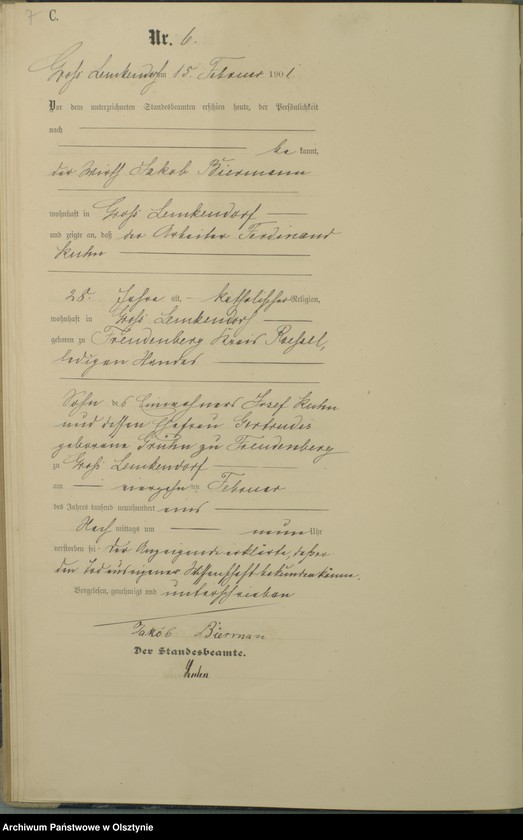 7 C.
Nr. 6.
Groß Lemkendorf am 15. Februar 1901
Vor dem unterzeichneten Standesbeamten erschien heute, der Persönlichkeit
nach
be kannt,
der Wirth Jakob Biermann
wohnhaft in Groß Lemkendorf
und zeigte an, daß der Arbeiter Ferdinand
Kuhn
28 Jahre alt, katholischer Religion,
wohnhaft in Groß Lemkendorf
geboren zu Freudenberg Kreis Roessel,
ledigen Standes
Sohn des Einwohners Josef Kuhn
und dessen Ehefrau Gertrudes
geborene Gruhn zu Freudenberg
zu Groß Lemkendorf
am vierzehnten Februar
des Jahres tausend neunhundert eins
Nach mittags um neun Uhr
verstorben sei der Anzeigende erklärte, daß er
den Tod aus eigener Wissenschaft bekunden könne.
Vorgelesen, genehmigt und unterschrieben
Jakob Bierman
Der Standesbeamte.
Archiwum Państwowe w Olsztynie